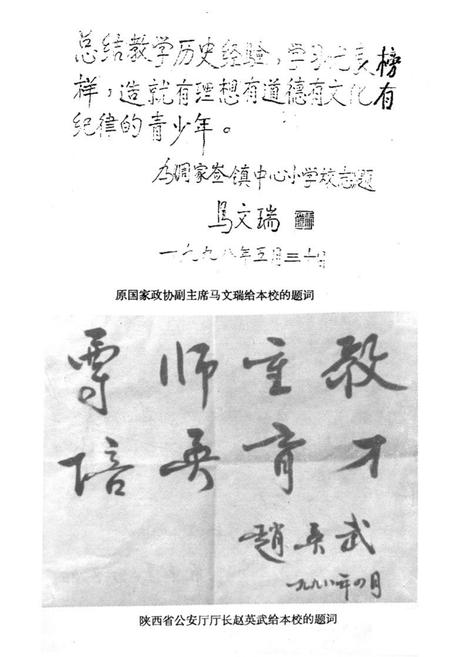 总结教学历史经验，学习尤良榜
样，造就有理想有道德有文化有
纪律的青少年。
为周家崄镇中心小学校志题
马文瑞
一九九八年五月三十日
原国家政协副主席马文瑞给本校的题词
尊师重教
培英育才
赵英武
一九九八年四月
陕西省公安厅厅长赵英武给本校的题词